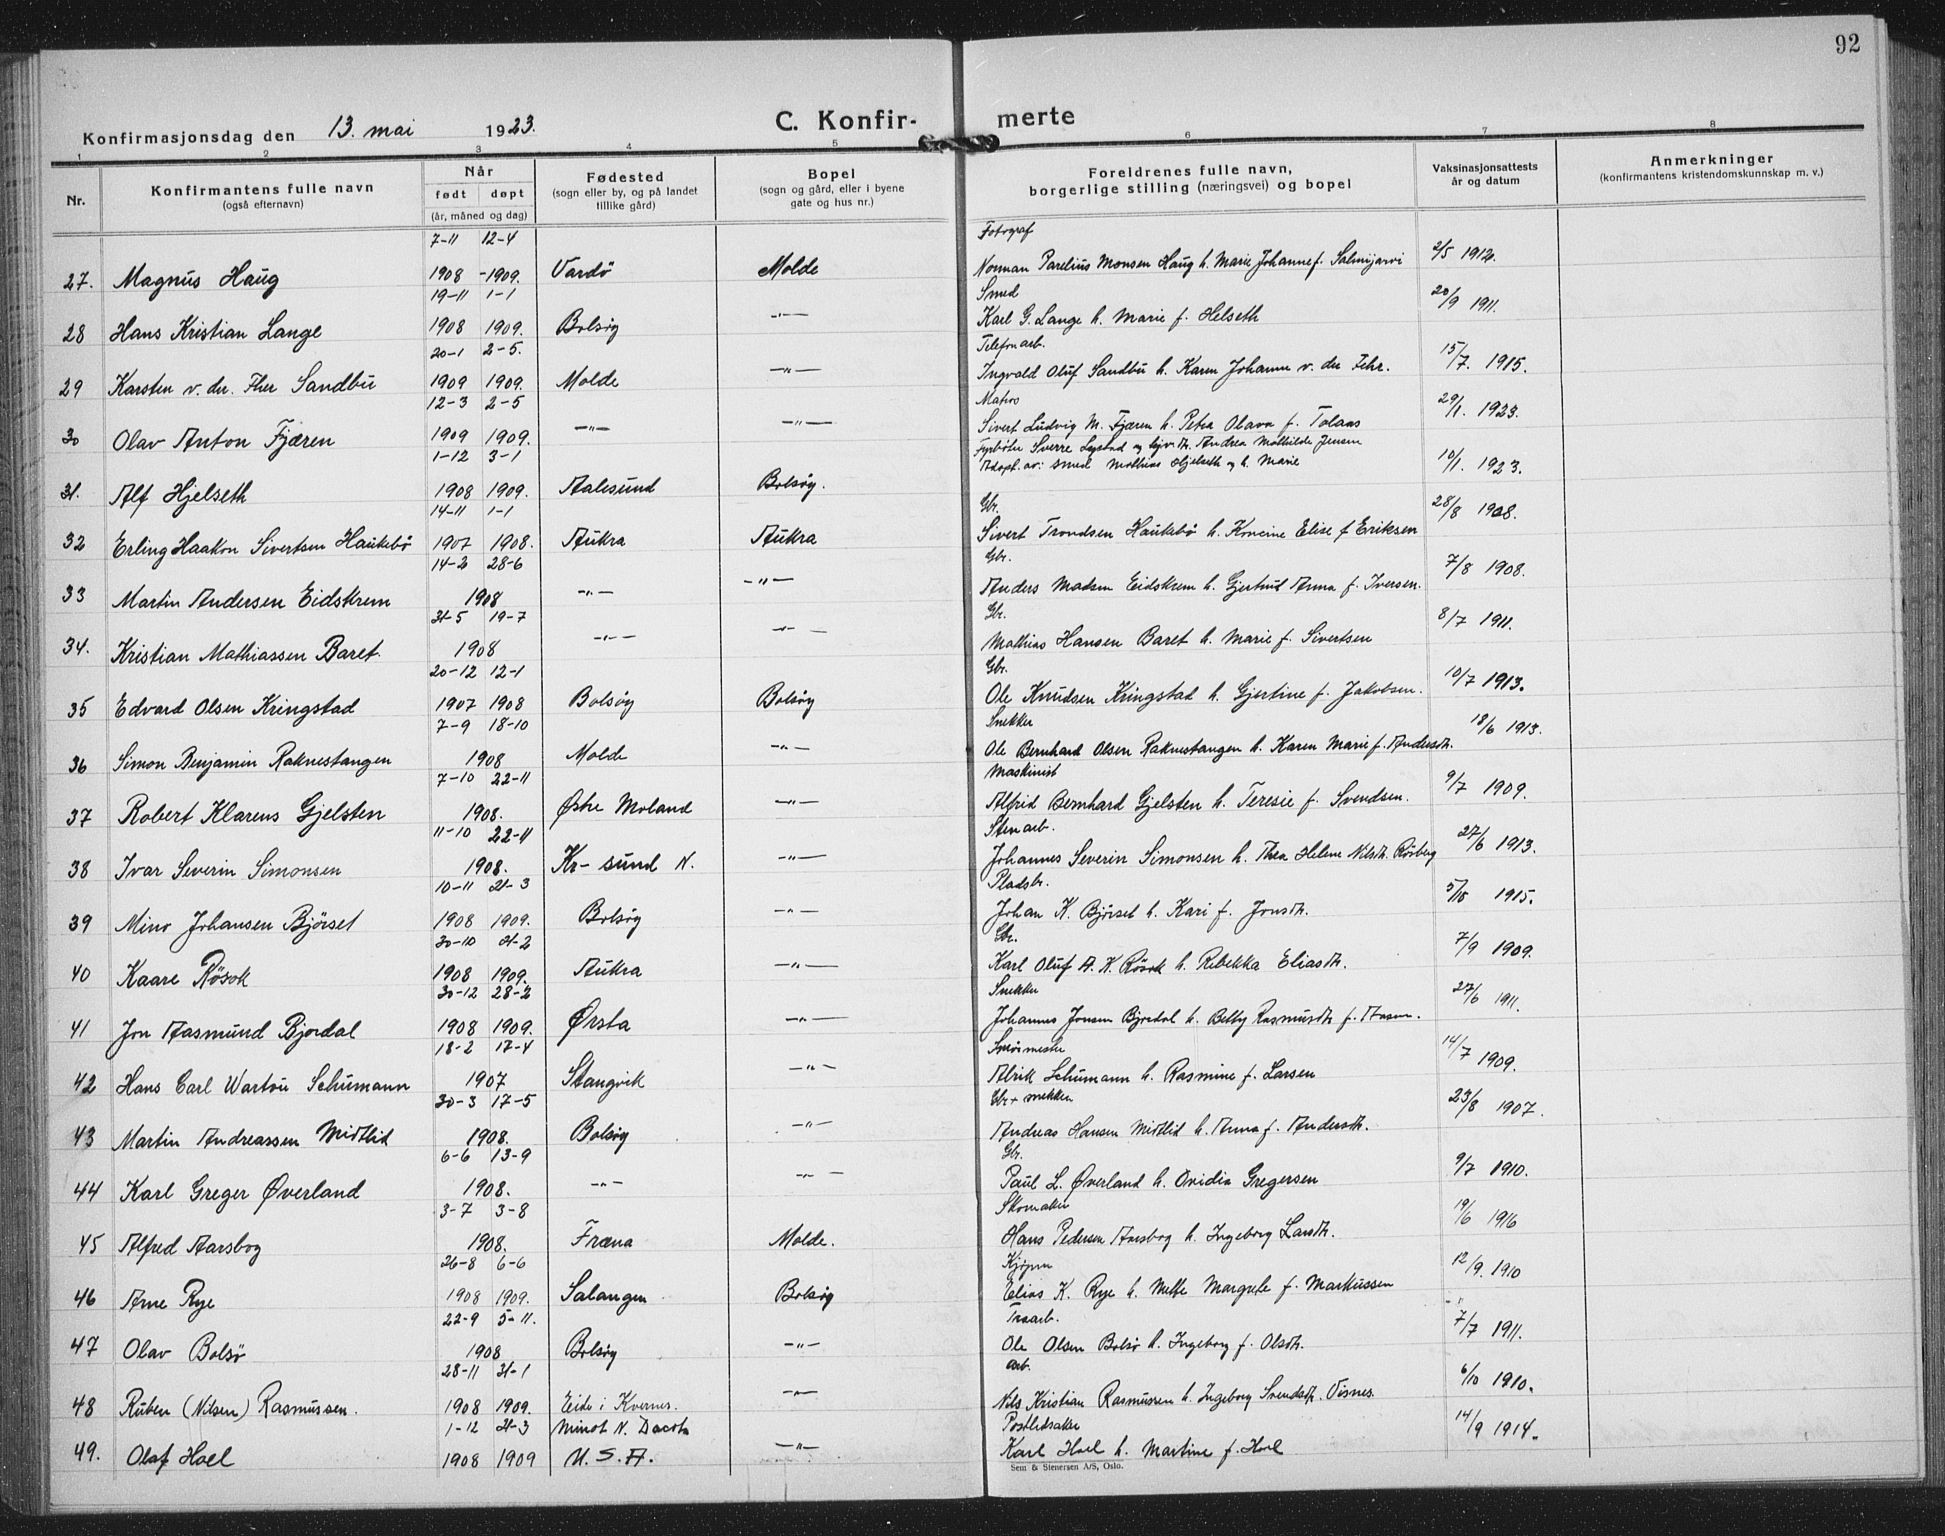 92
Konfirmasjonsdag den 13. mai 1923.
C. Konfir- merte
1 2 3 4 5 6 7 8
Nr.
Konfirmantens fulle navn
(også efternavn)
Når
født døpt
(år, måned og dag)
Fødested
(sogn eller by, og på landet
tillike gård)
Bopel
(sogn og gård, eller i byene
gate og hus nr.)
Foreldrenes fulle navn,
borgerlige stilling (næringsvei) og bopel
Vaksinasjonsattests
år og datum
Anmerkninger
(konfirmantens kristendomskunnskap m. v.)
7-11 12-4 Fotograf
27. Magnus Haug 1908 - 1909. Vardö Molde Norman Parelius Monsen Haug h. Marie Johanne f. Salmijarvi 2/5 1912.
19-11 1-1 Smed
28 Hans Kristian Lange 1908 1909. Bolsöy -"- Karl G. Lange h. Marie f. Helseth 20/9 1911.
20-1 2-5. Telefonarb.
29 Karsten v. der. Fher Sandbu 1909 1909. Molde -"- Ingvald Oluf Sandbu h. Karen Johanne v. der Fehr. 15/7. 1915.
12-3 2-5 Matros
30 Olav Anton Fjæren 1909 1909. -"- -"- Sivert Ludvig M. Fjæren h. Petra Olava f. Tolaas 29/1. 1923.
1-12 3-1 Fyrböter Sverre Lystad og tjv. dt. Andrea Mathilde Jensen
Adopt. av: smed Mathias Hjelseth og h. Marie
31. Alf Hjelseth 1908 1909. Aalesund Bolsöy. 10/1. 1923.
14-11 1-1 Gbr.
32 Erling Haakon Sivertsen Haukebö 1907 1908. Aukra Aukra Sivert Trondsen Haukebö h. Konerine Elise f Eriksen 28/8 1908.
14-2 28-6 Gbr.
33 Martin Andersen Eidskrem 1908 -"- -"- Anders Madsen Eidskrem h. Gjertrud Anna f. Iversen. 7/8 1908.
31-5 19-7 Gbr.
34. Kristian Mathiassen Baret. 1908 -"- -"- Mathias Hansen Baret h. Marie f. Sivertsen 8/7 1911.
20-12 12-1 Gbr.
35 Edvard Olsen Kringstad 1907 1908 Bolsöy Bolsöy Ole Knudsen Kringstad h. Gjertine f. Jakobsen. 10/7 1913.
7-9 18-10 Snekker
36 Simon Benjamin Raknestangen 1908 Molde -"- Ole Bernhard Olsen Raknestangen h. Karen Marie f. Andersdt. 18/6 1913.
7-10 22-11 Maskinist
37 Robert Klarens Gjelsten 1908. Østre Moland -"- Alfrid Bernhard Gjelsten h. Teresie f. Svendsen. 9/7 1909.
11-10 22-11 Stenarb.
38 Ivar Severin Simonsen 1908. Kr-sund N. -"- Johannes Severin Simonsen h. Thea Helene Nilsdt. Röxberg 27/6 1913.
10-11 21-3 Pladsbr.
39 Mino Johansen Bjørset 1908 1909. Bolsöy -"- Johan K. Bjørset h. Kari f. Jonsdt. 5/10 1915.
30-10 21-2 Gbr.
40 Kaare Røsok 1908 1909. Aukra -"- Karl Oluf A. K. Røsok h. Rebekka Eliasdt. 7/9 1909.
30-12 28-2 Snekker
41 Jon Aasmund Bjordal 1908 1909. Ørsta -"- Johannes Jonsen Bjordal h. Betty Rasmusdt. f. Aasen. 27/6 1911.
18-2 17-4 Smörmester
42 Hans Carl Wartou Schumann 1907 Stangvik -"- Alrik Schumann h. Rasmine f. Larsen 14/7 1909.
30-3 17-5 Gbr + snekker
43 Martin Andreassen Midtlid 1908. Bolsöy -"- Andreas Hansen Midtlid h. Anna f. Andersdt. 23/8 1907.
6-6 13-9 Gbr.
44 Karl Greger Øverland 1908. -"- -"- Paul L. Øverland h. Ovidia Gregersen 9/7 1910.
3-7 3-8 Skomaker
45 Alfred Aarsbog 1908. Fræna Molde. Hans Pedersen Aarsbog h. Ingeborg Larsdt. 19/6 1916
26-8 6-6 Kjøpm
46 Arne Rye 1908 1909. Salangen Bolsöy Elias K. Rye h. Mette Margrete f. Markussen 12/9. 1910
22-9 5-11. Træarb.
47 Olav Bolsö 1908 Bolsöy -"- Ole Olsen Bolsö h. Ingeborg f. Olsdt. 7/7 1911.
28-11 31-1 arb.
48 Ruben (Nilsen) Rasmussen. 1908 1909. Eide i Kvernes. -"- Nils Kristian Rasmussen h. Ingeborg Svendsdt. Visnes. 6/10 1910.
1-12 21-3 Minot N. Dacota Postbetsakse
49. Olaf Hoel 1908 1909 U. S. A. -"- Karl Hoel h. Martine f. Hoel 14/9 1914.
Sem & Stenersen A/S, Oslo.